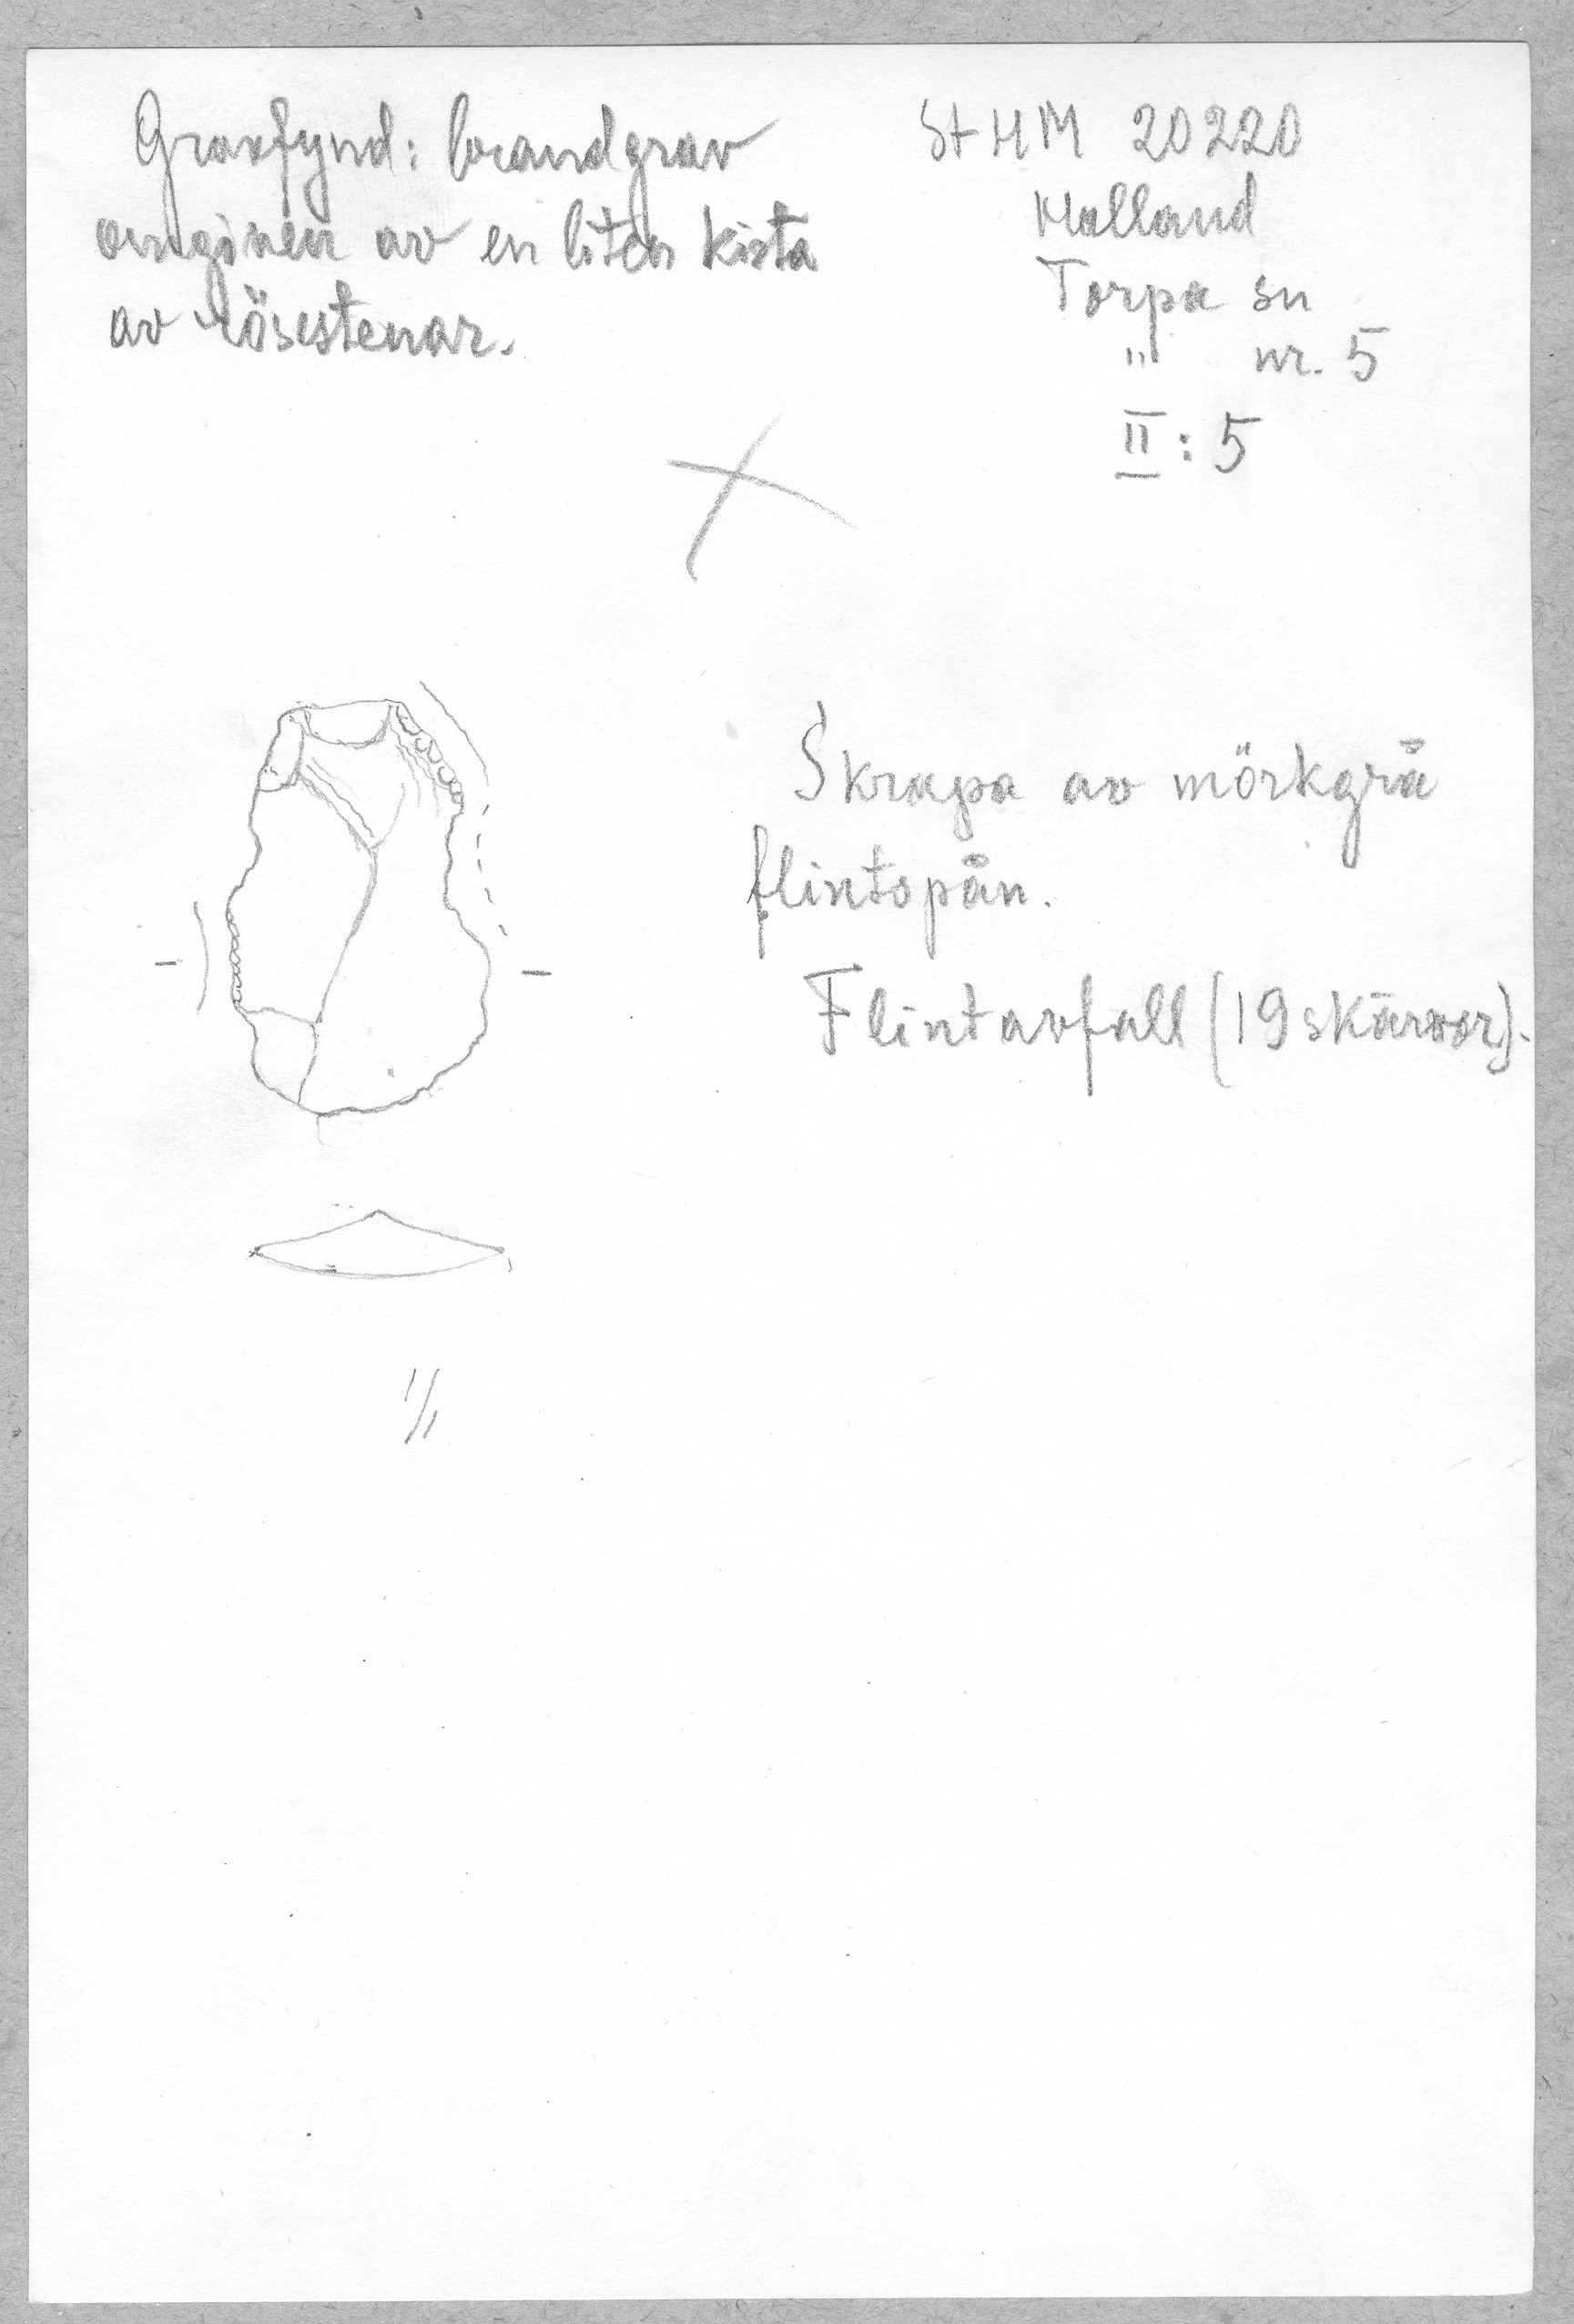 Gravfynd: brandgrav
omgiven av en liten kista
av rösestenar.
St H M 20220
Halland
Torpa sn
" nr. 5
II : 5
Skrapa av mörkgrå
flintspån.
Flintavfall (19 skärvor).
1/1